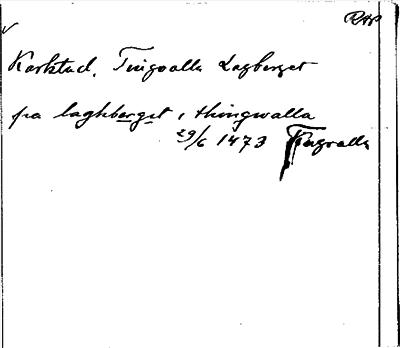 RAP
Karlstad, Tingvalla Lagberget
pa laghberget i thingwalla
29/6 1473 Tingvalla